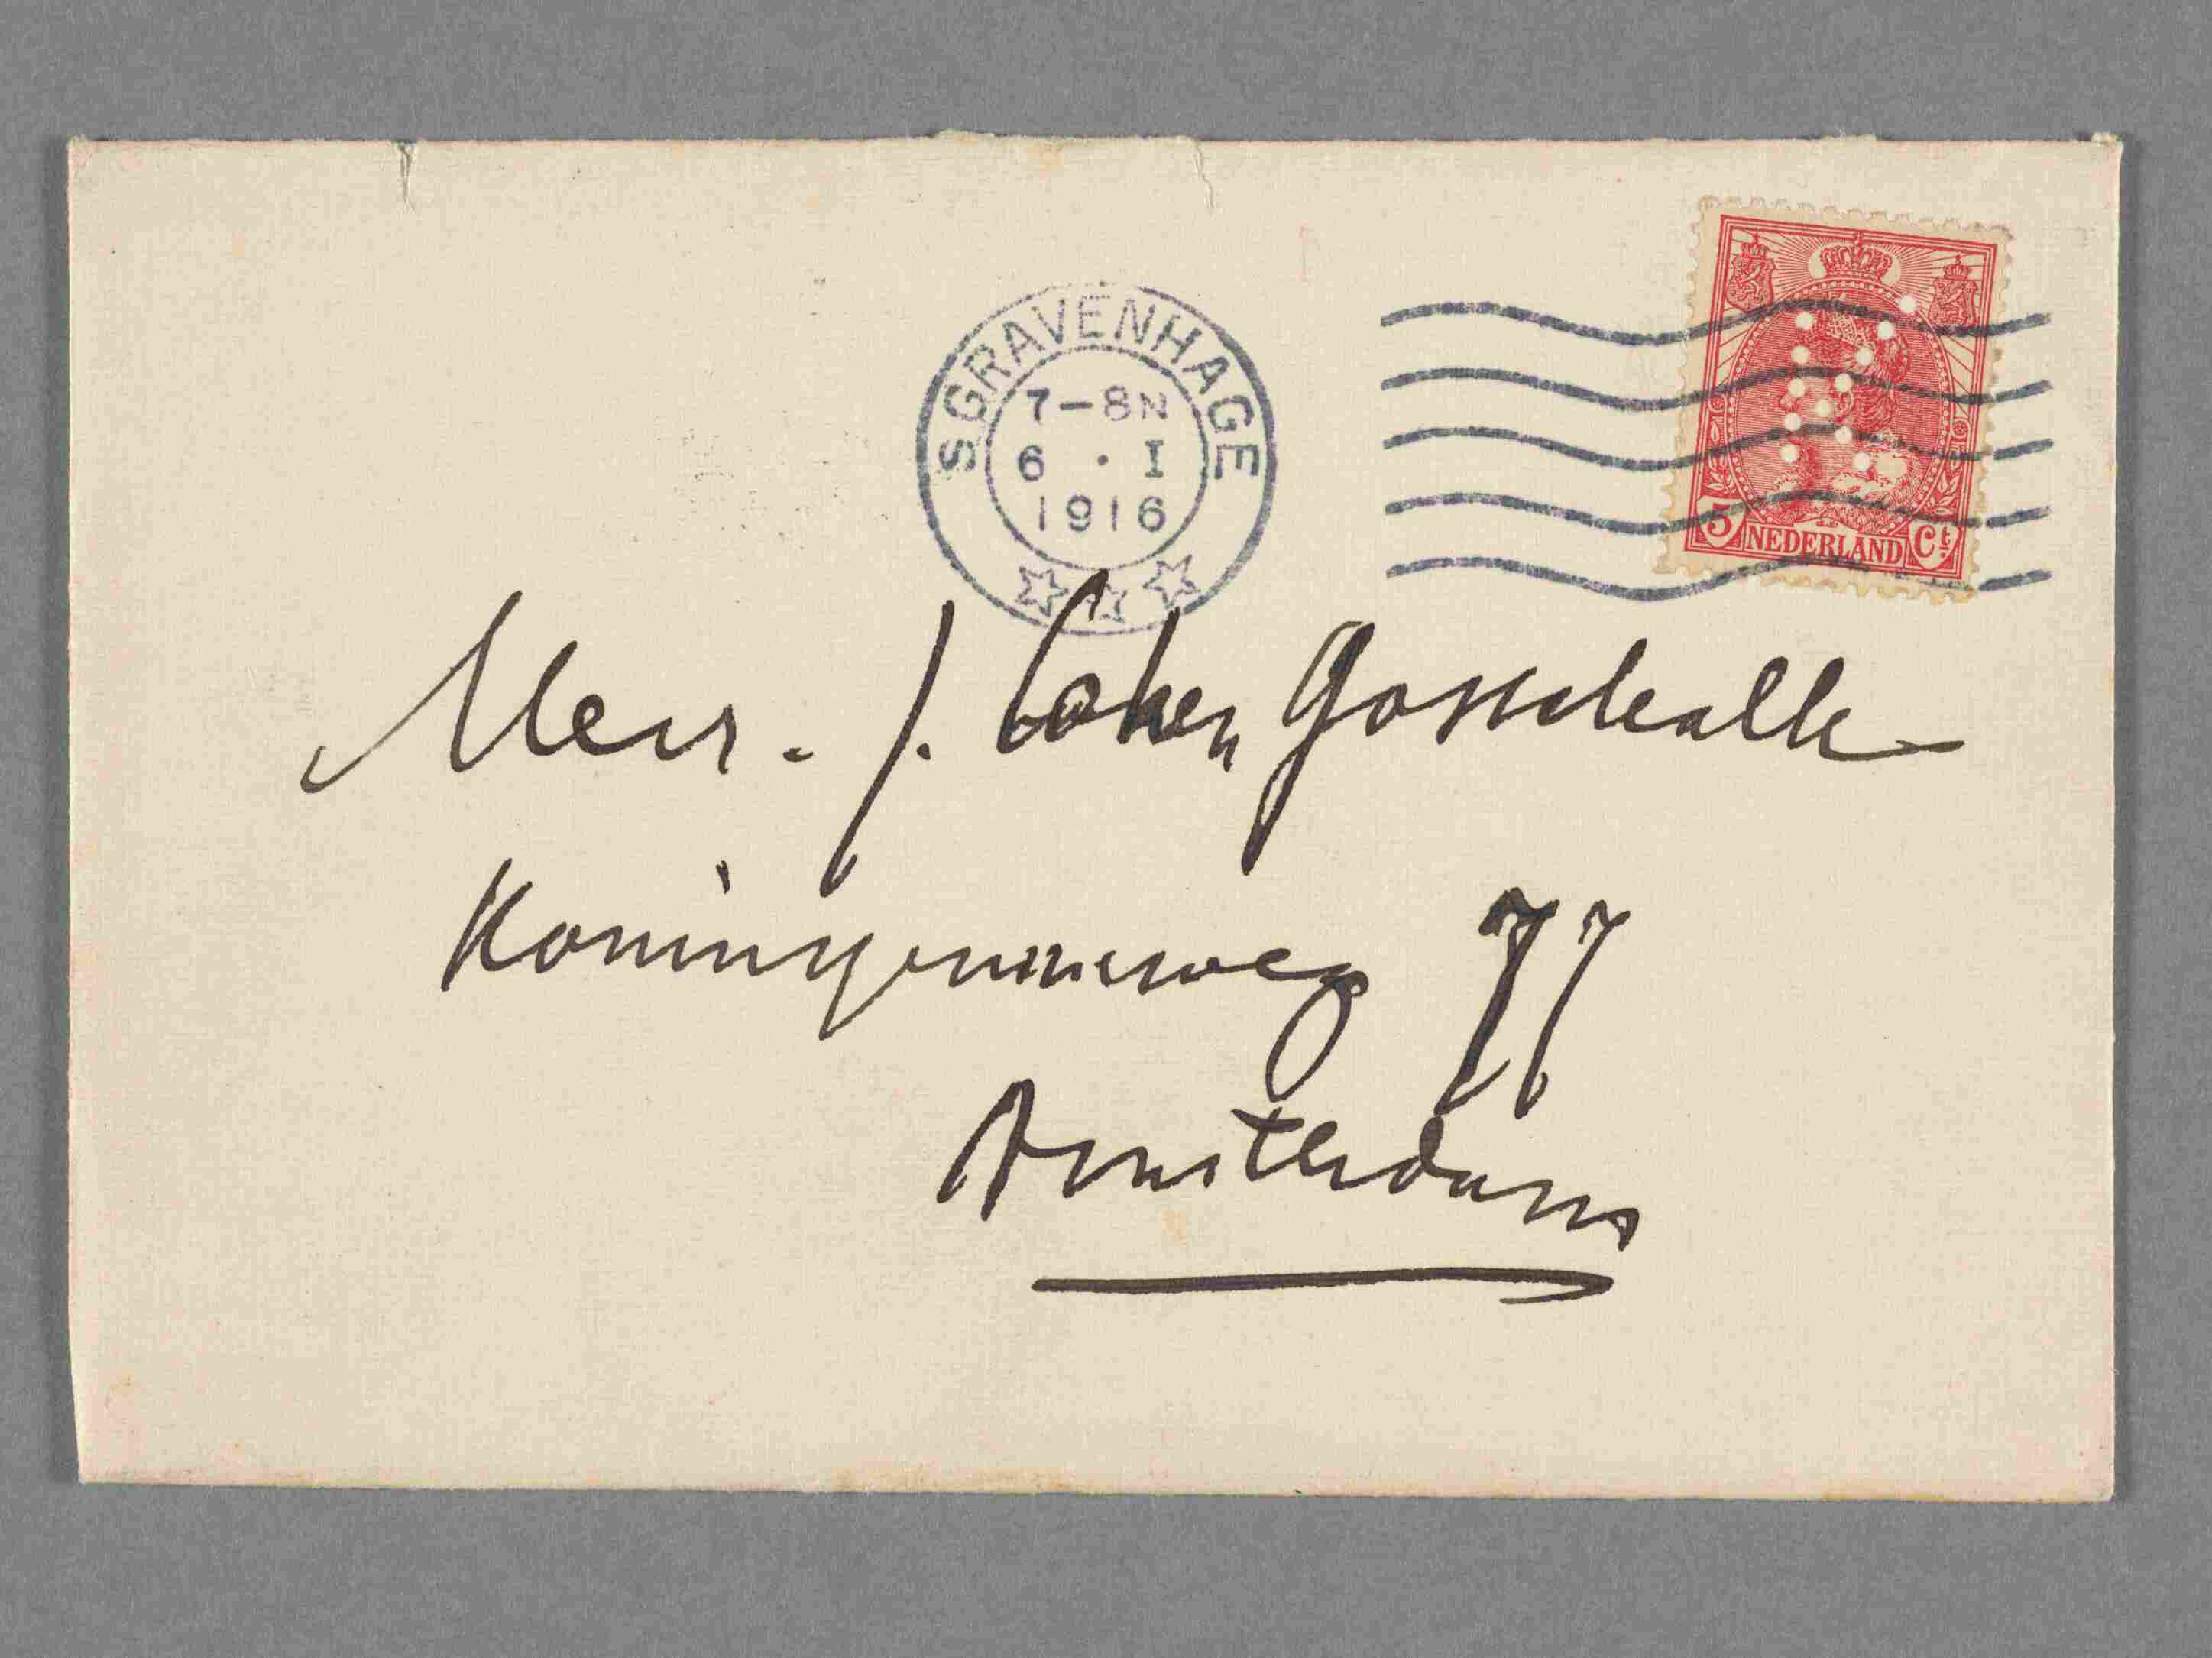 S GRAVENHAGE
7-8N
6 · I
1916
5 NEDERLAND Ct.
K
Mevr. J. Cohen Gosschalk
Koninginneweg 77
Amsterdam